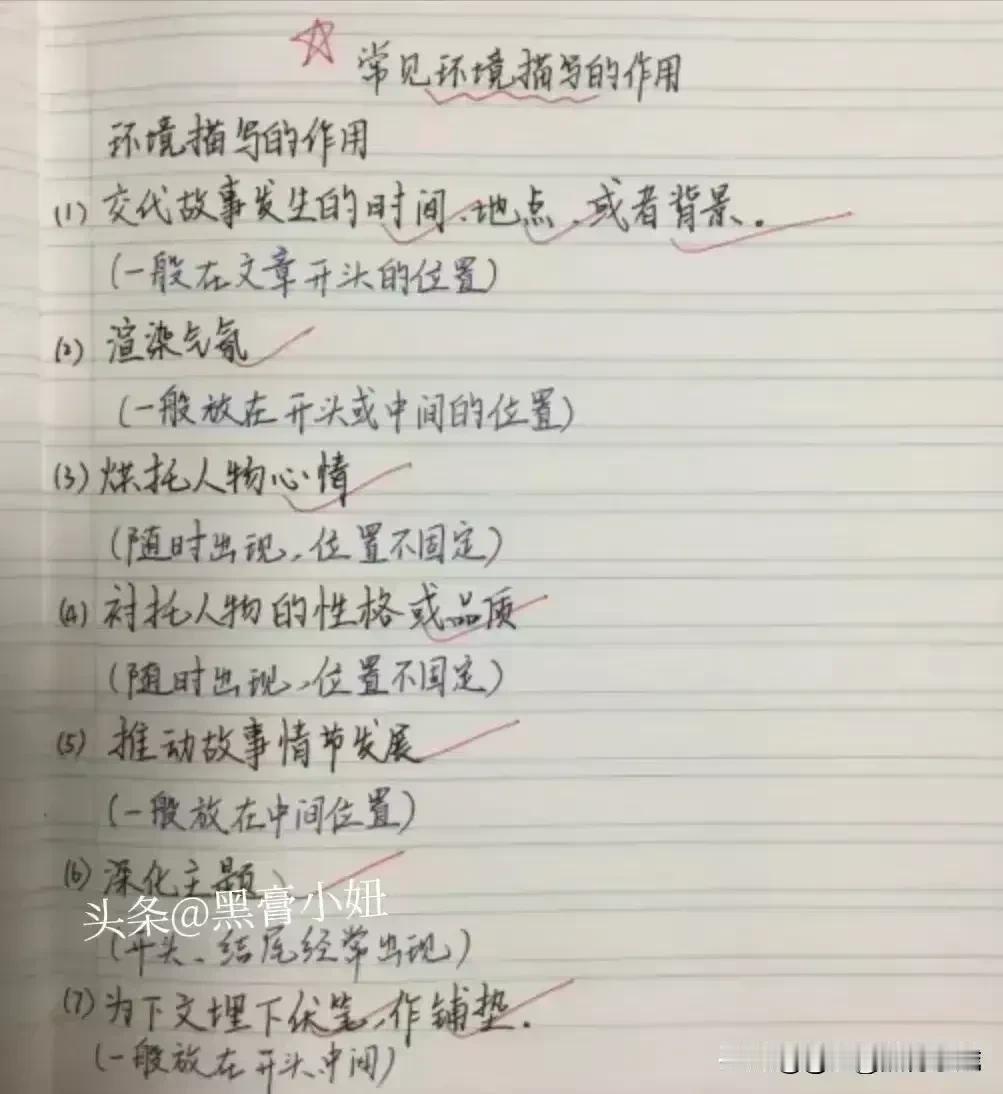 常见环境描写的作用
环境描写的作用
(1) 交代故事发生的时间、地点、或者背景.
(一般在文章开头的位置)
(2) 渲染气氛
(一般放在开头或中间的位置)
(3) 烘托人物心情
(随时出现,位置不固定)
(4) 衬托人物的性格或品质
(随时出现,位置不固定)
(5) 推动故事情节发展
(一般放在中间位置)
(6) 深化主题、
头条@黑膏小妞
(开头、结尾经常出现)
(7) 为下文埋下伏笔,作铺垫.
(一般放在开头、中间)